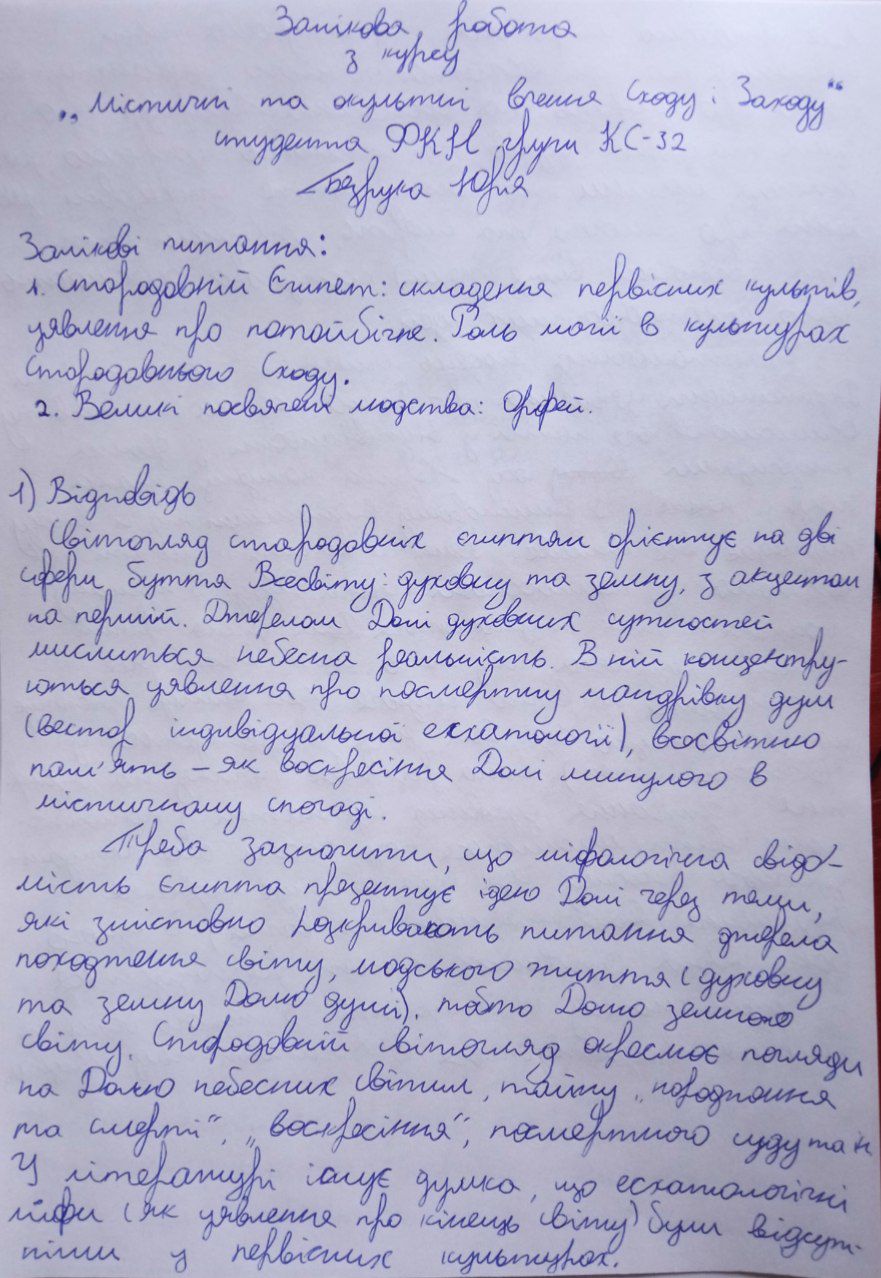 Залікова робота
з курсу
„Містичні та окультні вчення Сходу і Заходу"
студента ФКН групи КС-32
Безрука Юрія
Залікові питання:
1. Стародавній Єгипет: складення первісних культів,
уявлення про потойбічне. Роль магії в культурах
Стародавнього Сходу.
2. Великі посвячені людства: Орфей.
1) Відповідь
Світогляд стародавніх єгиптян орієнтує на дві
сфери буття Всесвіту: духовну та земну, з акцентом
на першій. Джерелом Долі духовних сутностей
мислиться небесна реальність. В ній концентру-
ються уявлення про посмертну мандрівку душ
(вектор індивідуальної есхатології), всесвітню
пам'ять – як воскресіння Долі минулого в
містичному спогаді.
Треба зазначити, що міфологічна свідо-
мість Єгипта презентує ідею Долі через теми,
які змістовно розкривають питання джерела
походження світу, людського життя (духовну
та земну Долю душі), тобто Долю земного
світу. Стародавній світогляд окреслює погляди
на Долю небесних світил, тайну „народження
та смерті", „воскресіння", посмертного суду та ін.
У літературі існує думка, що есхатологічні
міфи (як уявлення про кінець світу) були відсут-
німи у первісних культурах.